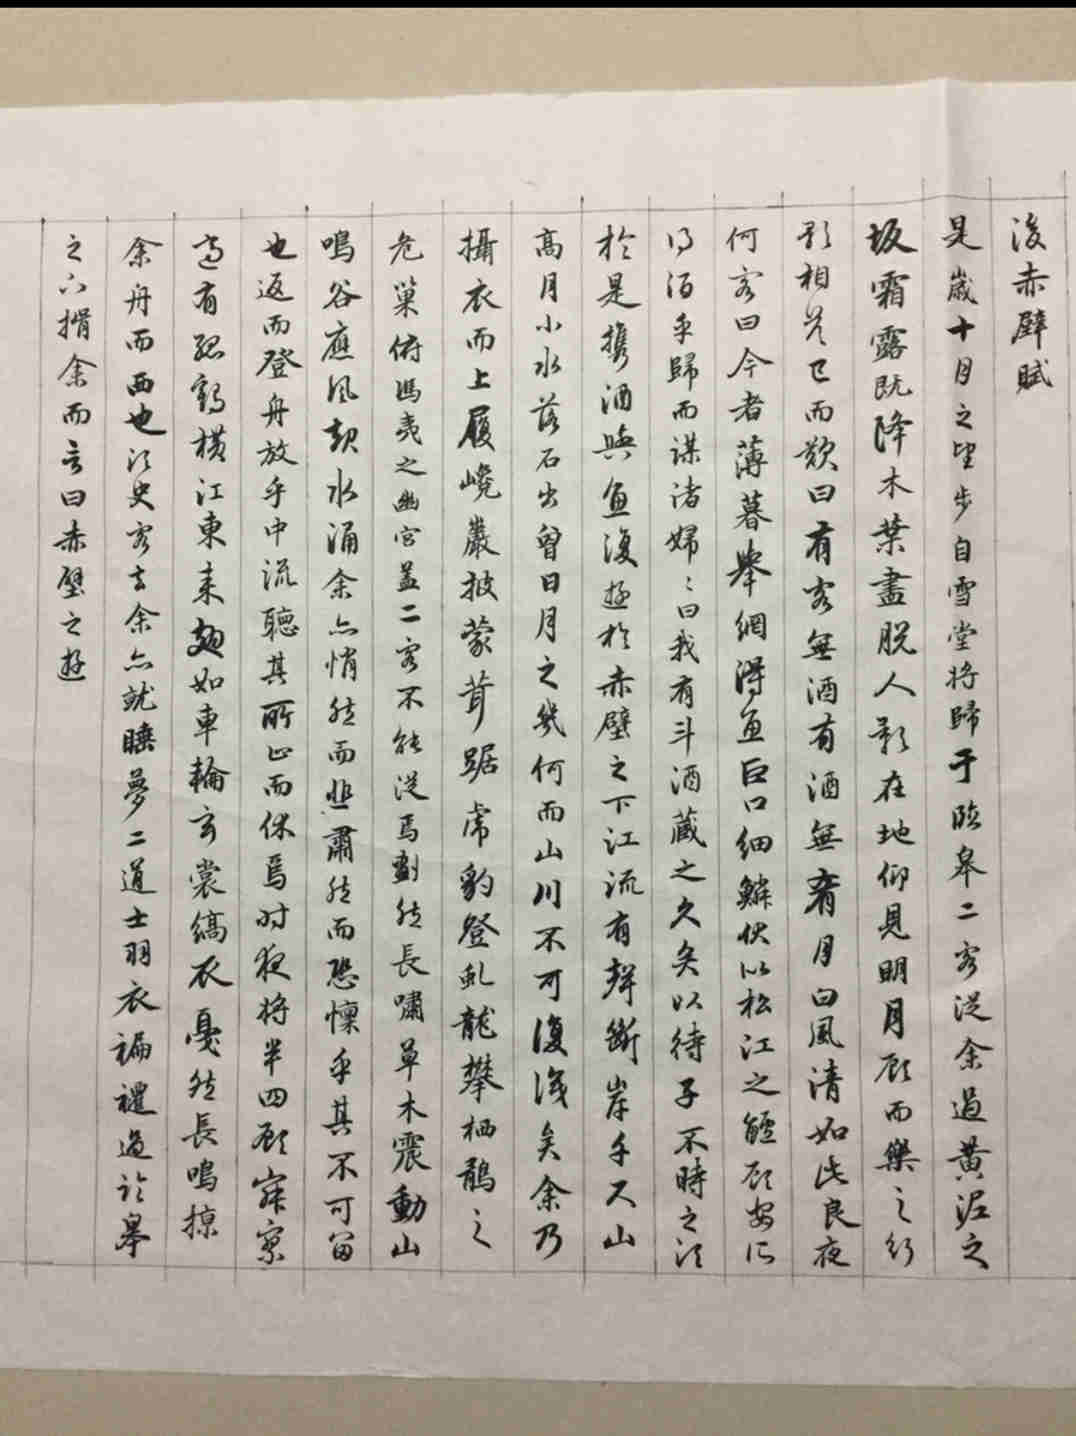 後赤壁賦
是歲十月之望步自雪堂將歸于臨皋二客從余過黃泥之
坂霜露既降木葉盡脫人影在地仰見明月顧而樂之行
歌相答已而歎曰有客無酒有酒無肴月白風清如此良夜
何客曰今者薄暮舉網得魚巨口細鱗狀似松江之鱸顧安所
得酒乎歸而謀諸婦〻曰我有斗酒藏之久矣以待子不時之須
於是攜酒與魚復遊於赤壁之下江流有聲斷岸千尺山
高月小水落石出曾日月之幾何而山川不可復識矣余乃
攝衣而上履巉巖披蒙茸踞虎豹登虬龍攀栖鶻之
危巢俯馮夷之幽宮蓋二客不能從焉劃然長嘯草木震動山
鳴谷應風起水涌余亦悄然而悲肅然而恐懍乎其不可留
也返而登舟放乎中流聽其所止而休焉時夜將半四顧寂寥
適有孤鶴橫江東來翅如車輪玄裳縞衣戛然長鳴掠
余舟而西也須臾客去余亦就睡夢二道士羽衣褊褼過臨皋
之下揖余而言曰赤壁之遊